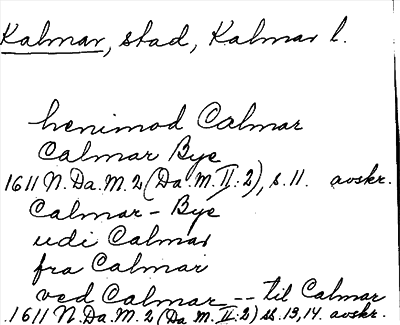 Kalmar, stad, Kalmar l.
henimod Calmar
Calmar Bye
1611 N. Da. M. 2 (Da. M. II: 2), s. 11. avskr.
Calmar - Bye
udi Calmar
fra Calmar
ved Calmar -- til Calmar
1611 N. Da. M. 2 (Da. M. II: 2) ss. 13, 14. avskr.